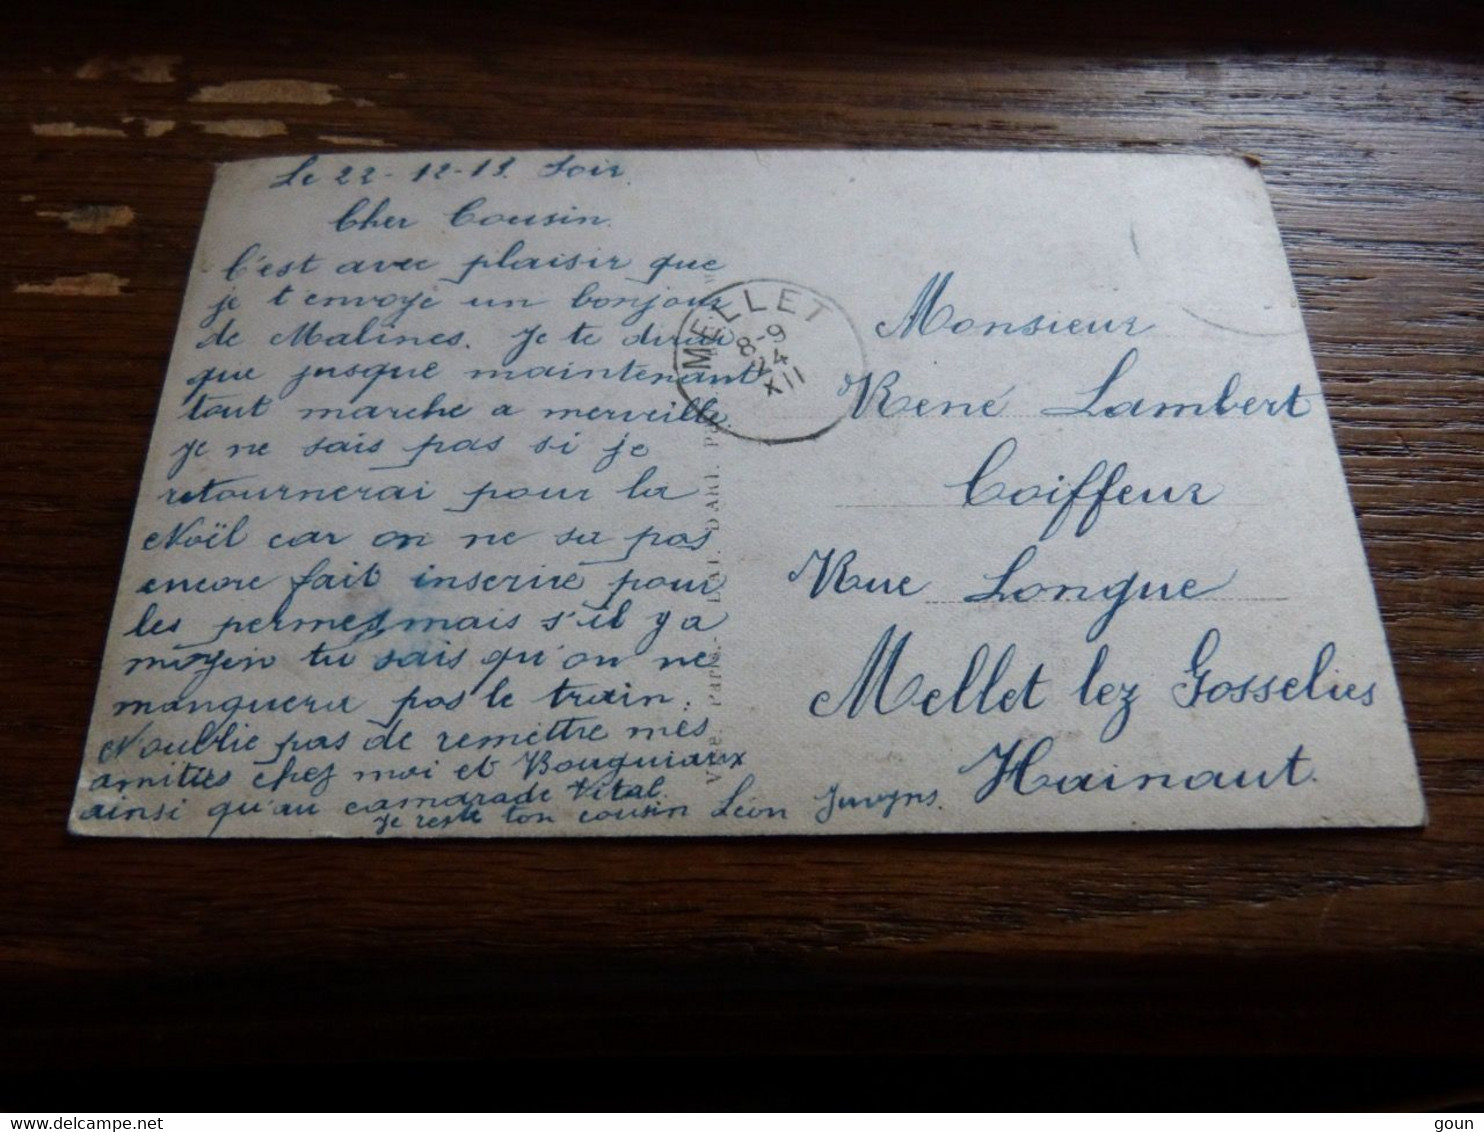 Le 22-12-19. Soir
Cher Cousin.
C'est avec plaisir que
je t'envoye un bonjour
de Malines. Je te dirai
que jusque maintenant
tout marche a merveille.
Je ne sais pas si je
retournerai pour la
Noël car on ne sa pas
encore fait inscrire pour
les permes, mais s'il y a
moyen tu sais qu'on ne
manquera pas le train.
N'oublie pas de remettre mes
amitiés chez moi et Bouquiaux
ainsi qu'au camarade Vital.
Je reste ton cousin Léon
MELLET
8-9
24
XII
D'ART.
Monsieur
René Lambert
Coiffeur
Rue Longue
Mellet lez Gosselies
Hainaut.
goun